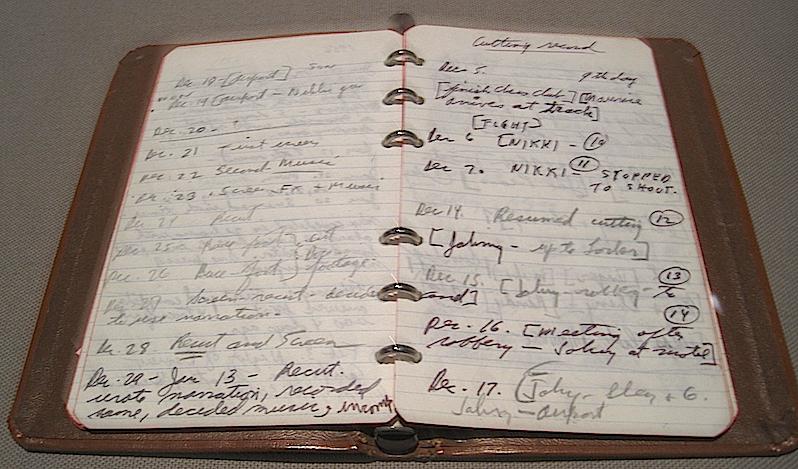 Dec 18 - [airport]
Dec 19 [airport -
Dec. 20 - ?
Dec. 21 -
Dec. 22 Second Music
Dec. 23. Screen FX + Music
Recut
Dec. 25 - Race foot cut
Dec. 26 Race - foot footage
Dec. 27 Screen - recut, decided
to use narration.
Dec. 28 Recut and Screen
Dec. 29 - Jan 13 - Recut.
wrote narration, recorded
same, decided music,
Cutting record
Dec 5. 9th day
[finish chess club] [Maurice
arrives at track]
[FIGHT]
Dec 6 [NIKKI - 10
Dec 7. NIKKI - 11 STOPPED
TO SHOOT.
Dec 14. Resumed cutting 12
[Johnny - up to
Dec 15. [Johnny robbery - 13
To end]
14
Dec. 16. [Meeting after
robbery - Johnny at motel]
Dec. 17. [Johnny - + G.
Johnny - airport